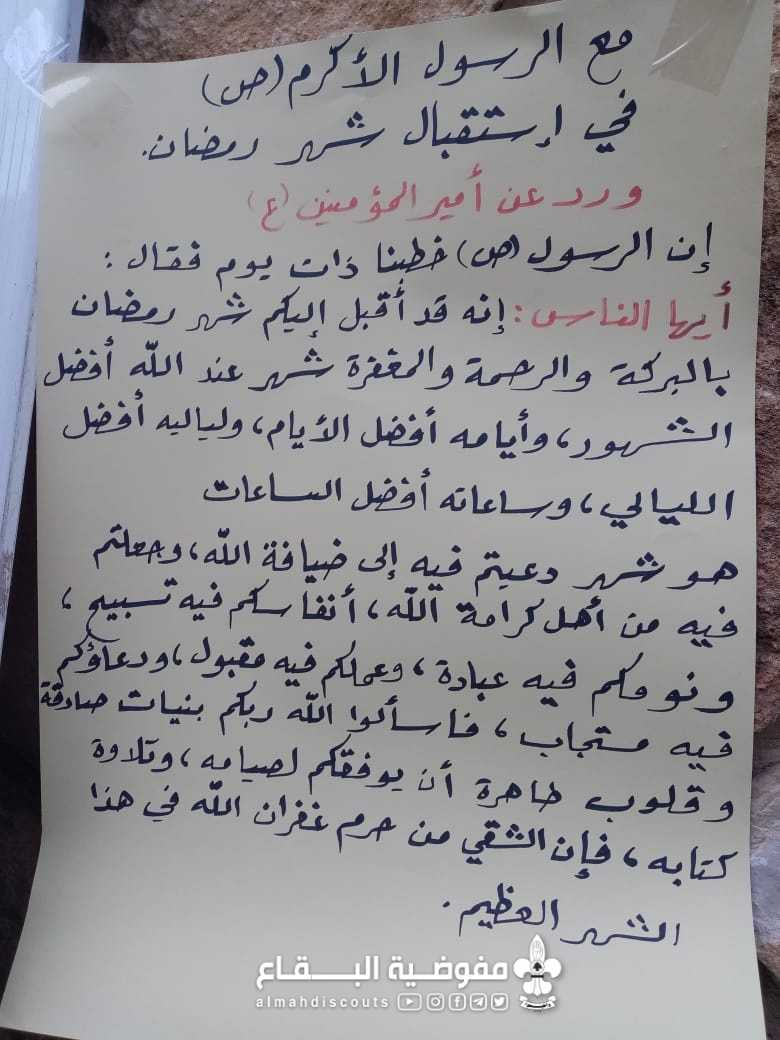 مع الرسول الأكرم (ص)
في إستقبال شهر رمضان.
ورد عن أمير المؤمنين (ع)
إن الرسول (ص) خطبنا ذات يوم فقال :
أيها الناس : إنه قد أقبل إليكم شهر رمضان
بالبركة والرحمة والمغفرة شهر عند الله أفضل
الشهور، وأيامه أفضل الأيام، ولياليه أفضل
الليالي، وساعاته أفضل الساعات
هو شهر دعيتم فيه إلى ضيافة الله، وجعلتم
فيه من أهل كرامة الله، أنفاسكم فيه تسبيح،
ونومكم فيه عبادة، وعملكم فيه مقبول، ودعاؤكم
فيه مستجاب، فاسألوا الله ربكم بنيات صادقة
وقلوب طاهرة أن يوفقكم لصيامه، وتلاوة
كتابه، فإن الشقي من حرم غفران الله في هذا
الشهر العظيم.
مفوضية البقاع
almahdiscouts